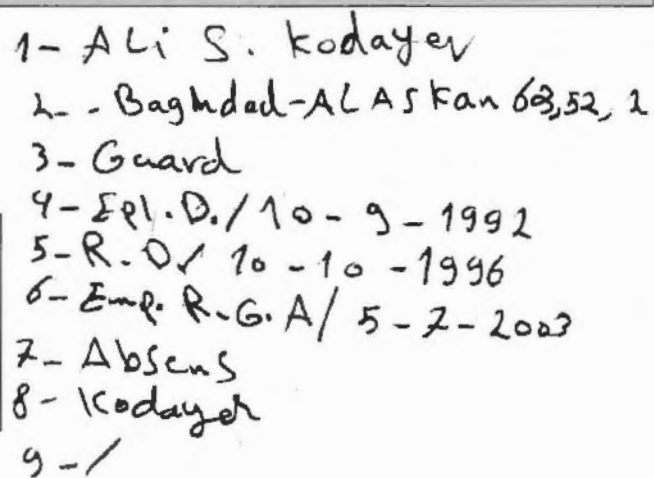 1- ALi S. Kodayer
2- - Baghded-ALASkan 63,52, 2
3- Guard
4- Epl. D. / 10-9-1992
5- R. D / 10-10-1996
6- Emp. R.G.A / 5-7-2003
7- Absens
8- Kodayer
9- /